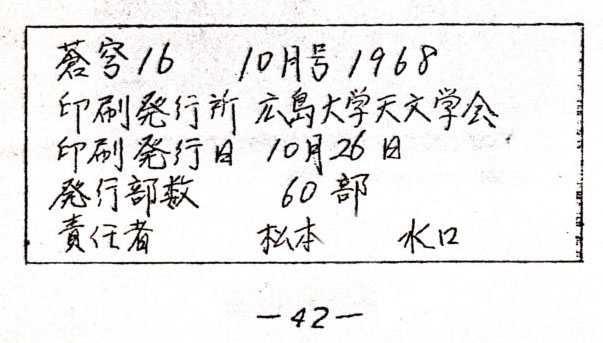 蒼穹16 10月号 1968
印刷発行所 広島大学天文学会
印刷発行日 10月26日
発行部数 60部
責任者 松本 水口
-42-